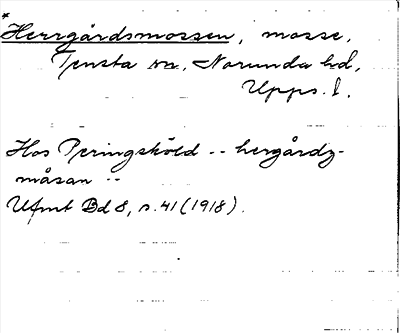 *
Herrgårdsmossen, mosse,
Tensta sn, Norunda hd,
Upps. l.
Hos Peringsköld -- hergårdz-
måsan --
Ufmt Bd 8, s. 41 (1918).